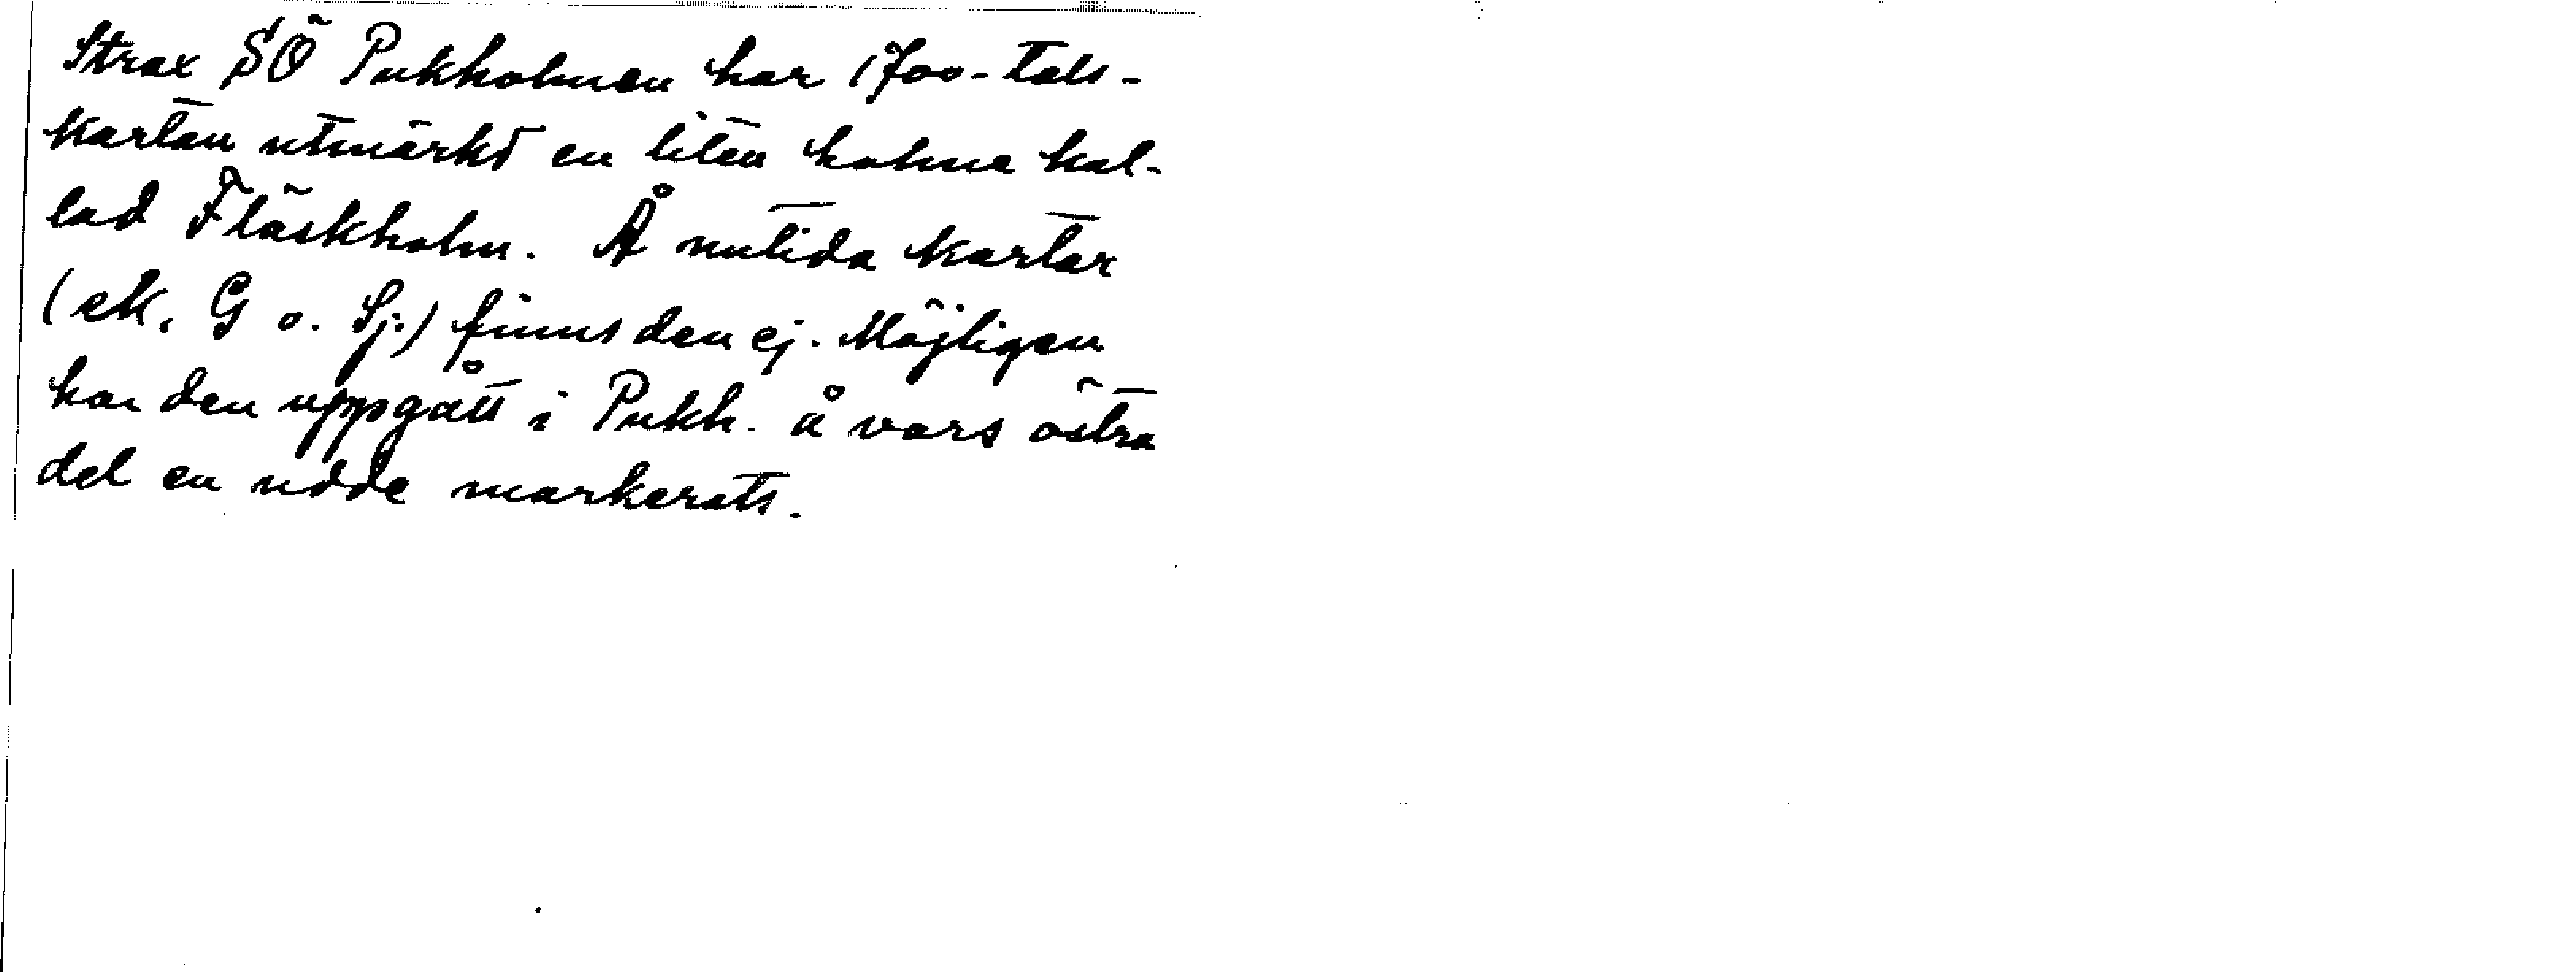 Strax SÖ Pukholmen har 1700-tals-
kartan utmärkt en liten holme kal-
lad Fläskholm. Å nutida kartor
(ek, G o. Sj.) finns den ej. Möjligen
har den uppgått i Pukh. å vars östra
del en udde markerats.